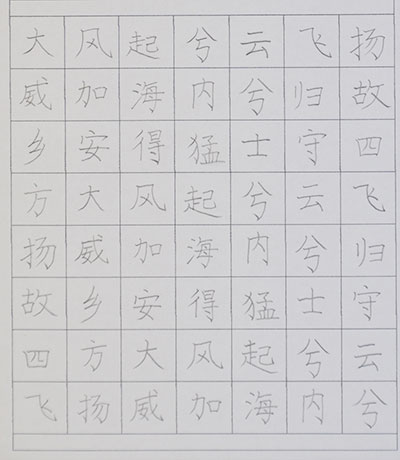 大风起兮云飞扬
威加海内兮归故
乡安得猛士守四
方大风起兮云飞
扬威加海内兮归
故乡安得猛士守
四方大风起兮云
飞扬威加海内兮